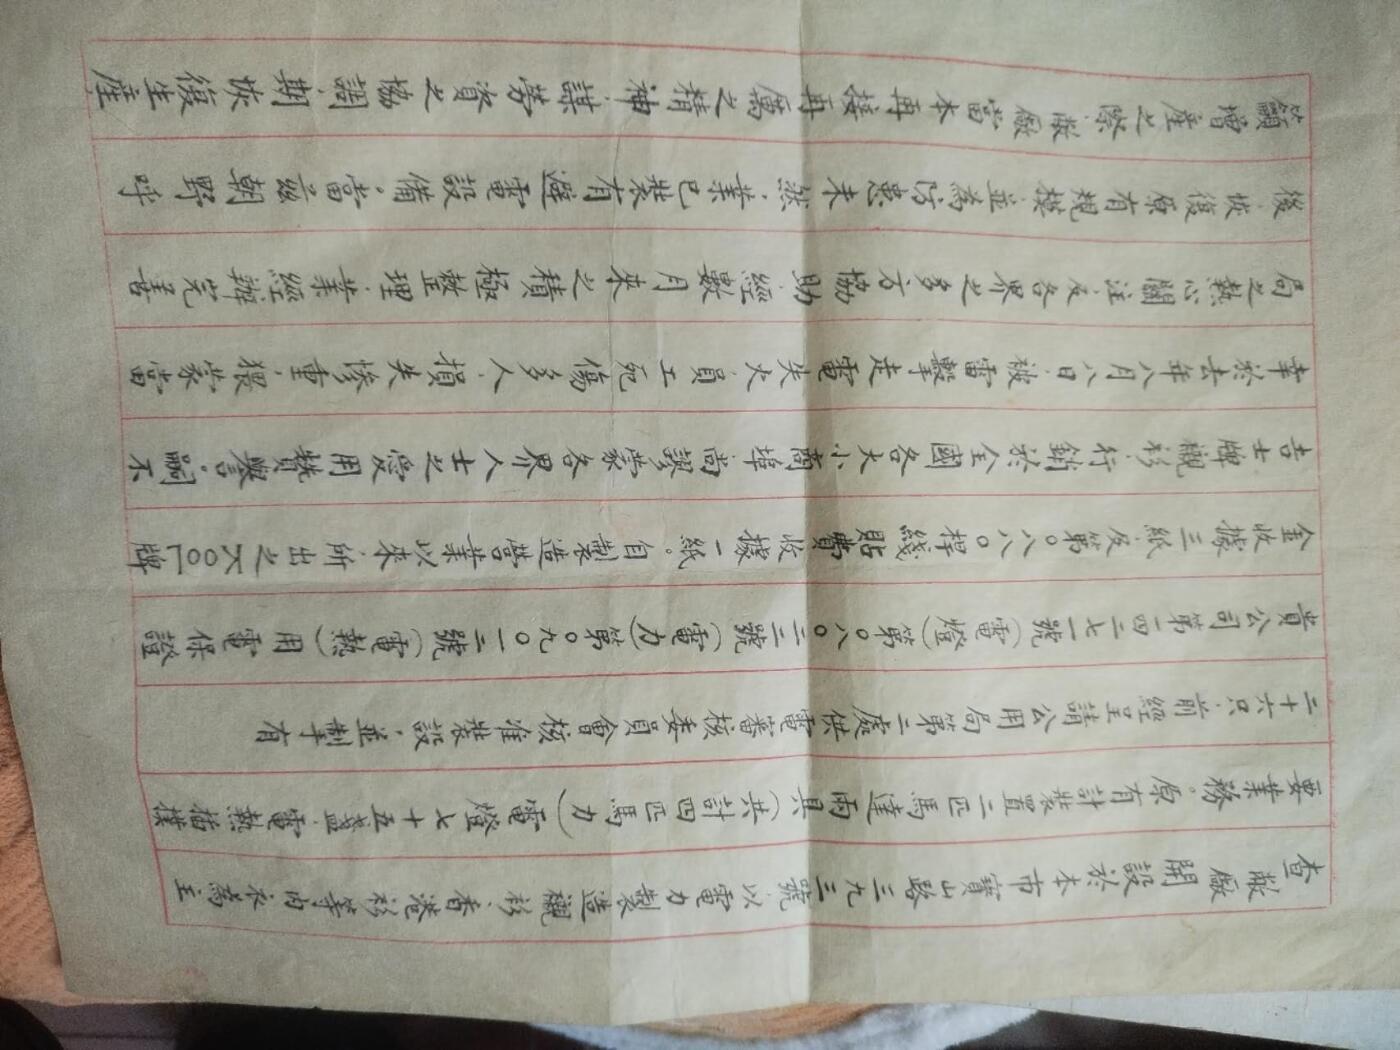 查敝廠開設於本市寶山路三九三號.以電力製造襯衫.香港衫等內衣為主
要業務。原有計裝置二匹馬達兩具(共計四匹馬力)電燈七十五盞.電熱插撲
二十六只.前經呈請公用局第二處供電審核委員會核准裝設.並制手有
貴公司第一四二七一號(電燈)第〇八〇二三號(電力)第〇九〇一二號(電熱)用電保證
金收據三紙.及第〇八八〇桿綫貼費收據一紙。自製造營業以來.所出之KOOL牌
吉士牌襯衫.行銷於全國各大小商埠.尚謬蒙各界人士之愛用贊譽.嗣不
幸於去年八月八日.被雷擊走電失火.員工死傷多人.損失慘重.猥蒙當
局之熱心關注.及各界之多方協助.經數月來之積極整理.業經辦完善
後.恢復原有規模.並為防患未然.業已裝有避電設備.當茲朝野呼
籲增產之際.敝廠當本再接再厲之精神.謀勞資之協調.期恢復生產